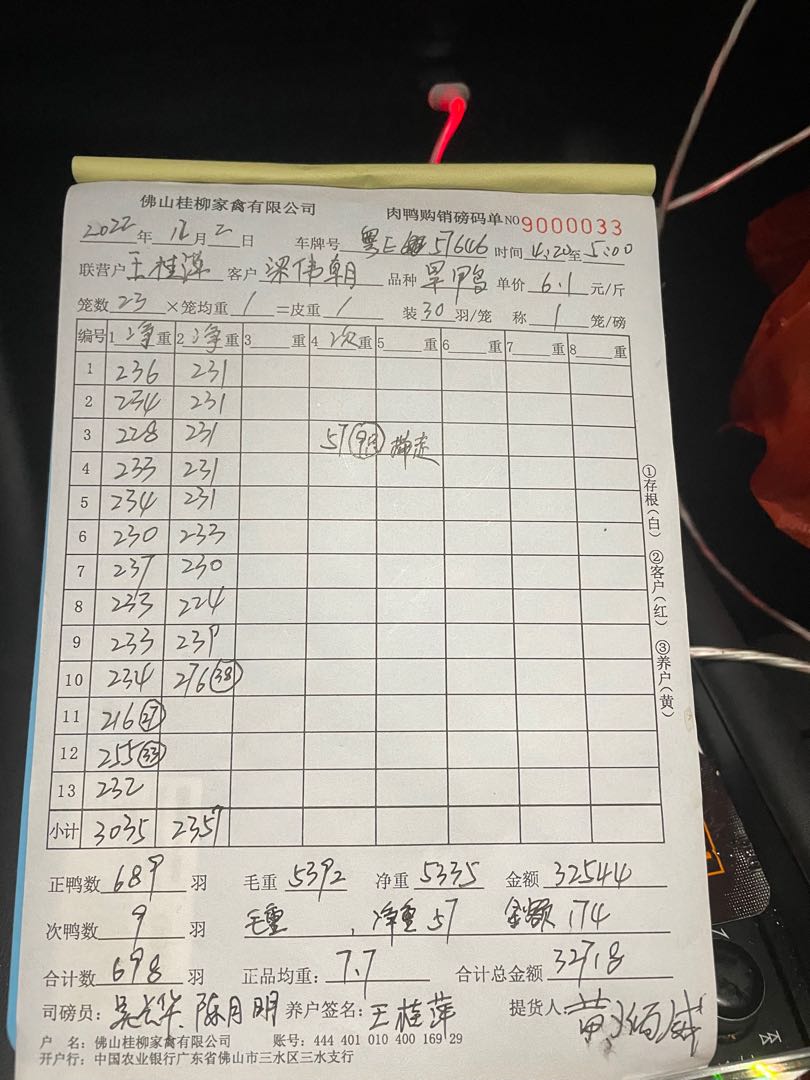 佛山桂柳家禽有限公司 肉鸭购销磅码单 NO 9000033
2022年12月2日 车牌号 粤E 57646 时间 4:20至5:00
联营户 王桂萍 客户 梁伟朝 品种 旱甲鸟 单价 6.1 元/斤
笼数 23 ×笼均重 / =皮重 / 装 30 羽/笼 称 1 笼/磅
编号 1 净 重 2 净 重 3 重 4 次 重 5 重 6 重 7 重 8 重
1 236 231
2 234 231
3 228 231 57
4 233 231
5 234 231
6 230 233
7 237 230
8 233 224
9 233 239
10 234 276 38
11 216 27
12 255 33
13 232
小计 3035 2357
正鸭数 689 羽 毛重 5392 净重 5335 金额 32544
次鸭数 9 羽 毛重 , 净重 57 金额 174
合计数 698 羽 正品均重: 7.7 合计总金额 32718
司磅员: 陈月明 养户签名: 王桂萍 提货人: 黄
户 名: 佛山桂柳家禽有限公司 账号: 444 401 010 400 169 29
开户行: 中国农业银行广东省佛山市三水区三水支行
①存根(白) ②客户(红) ③养户(黄)